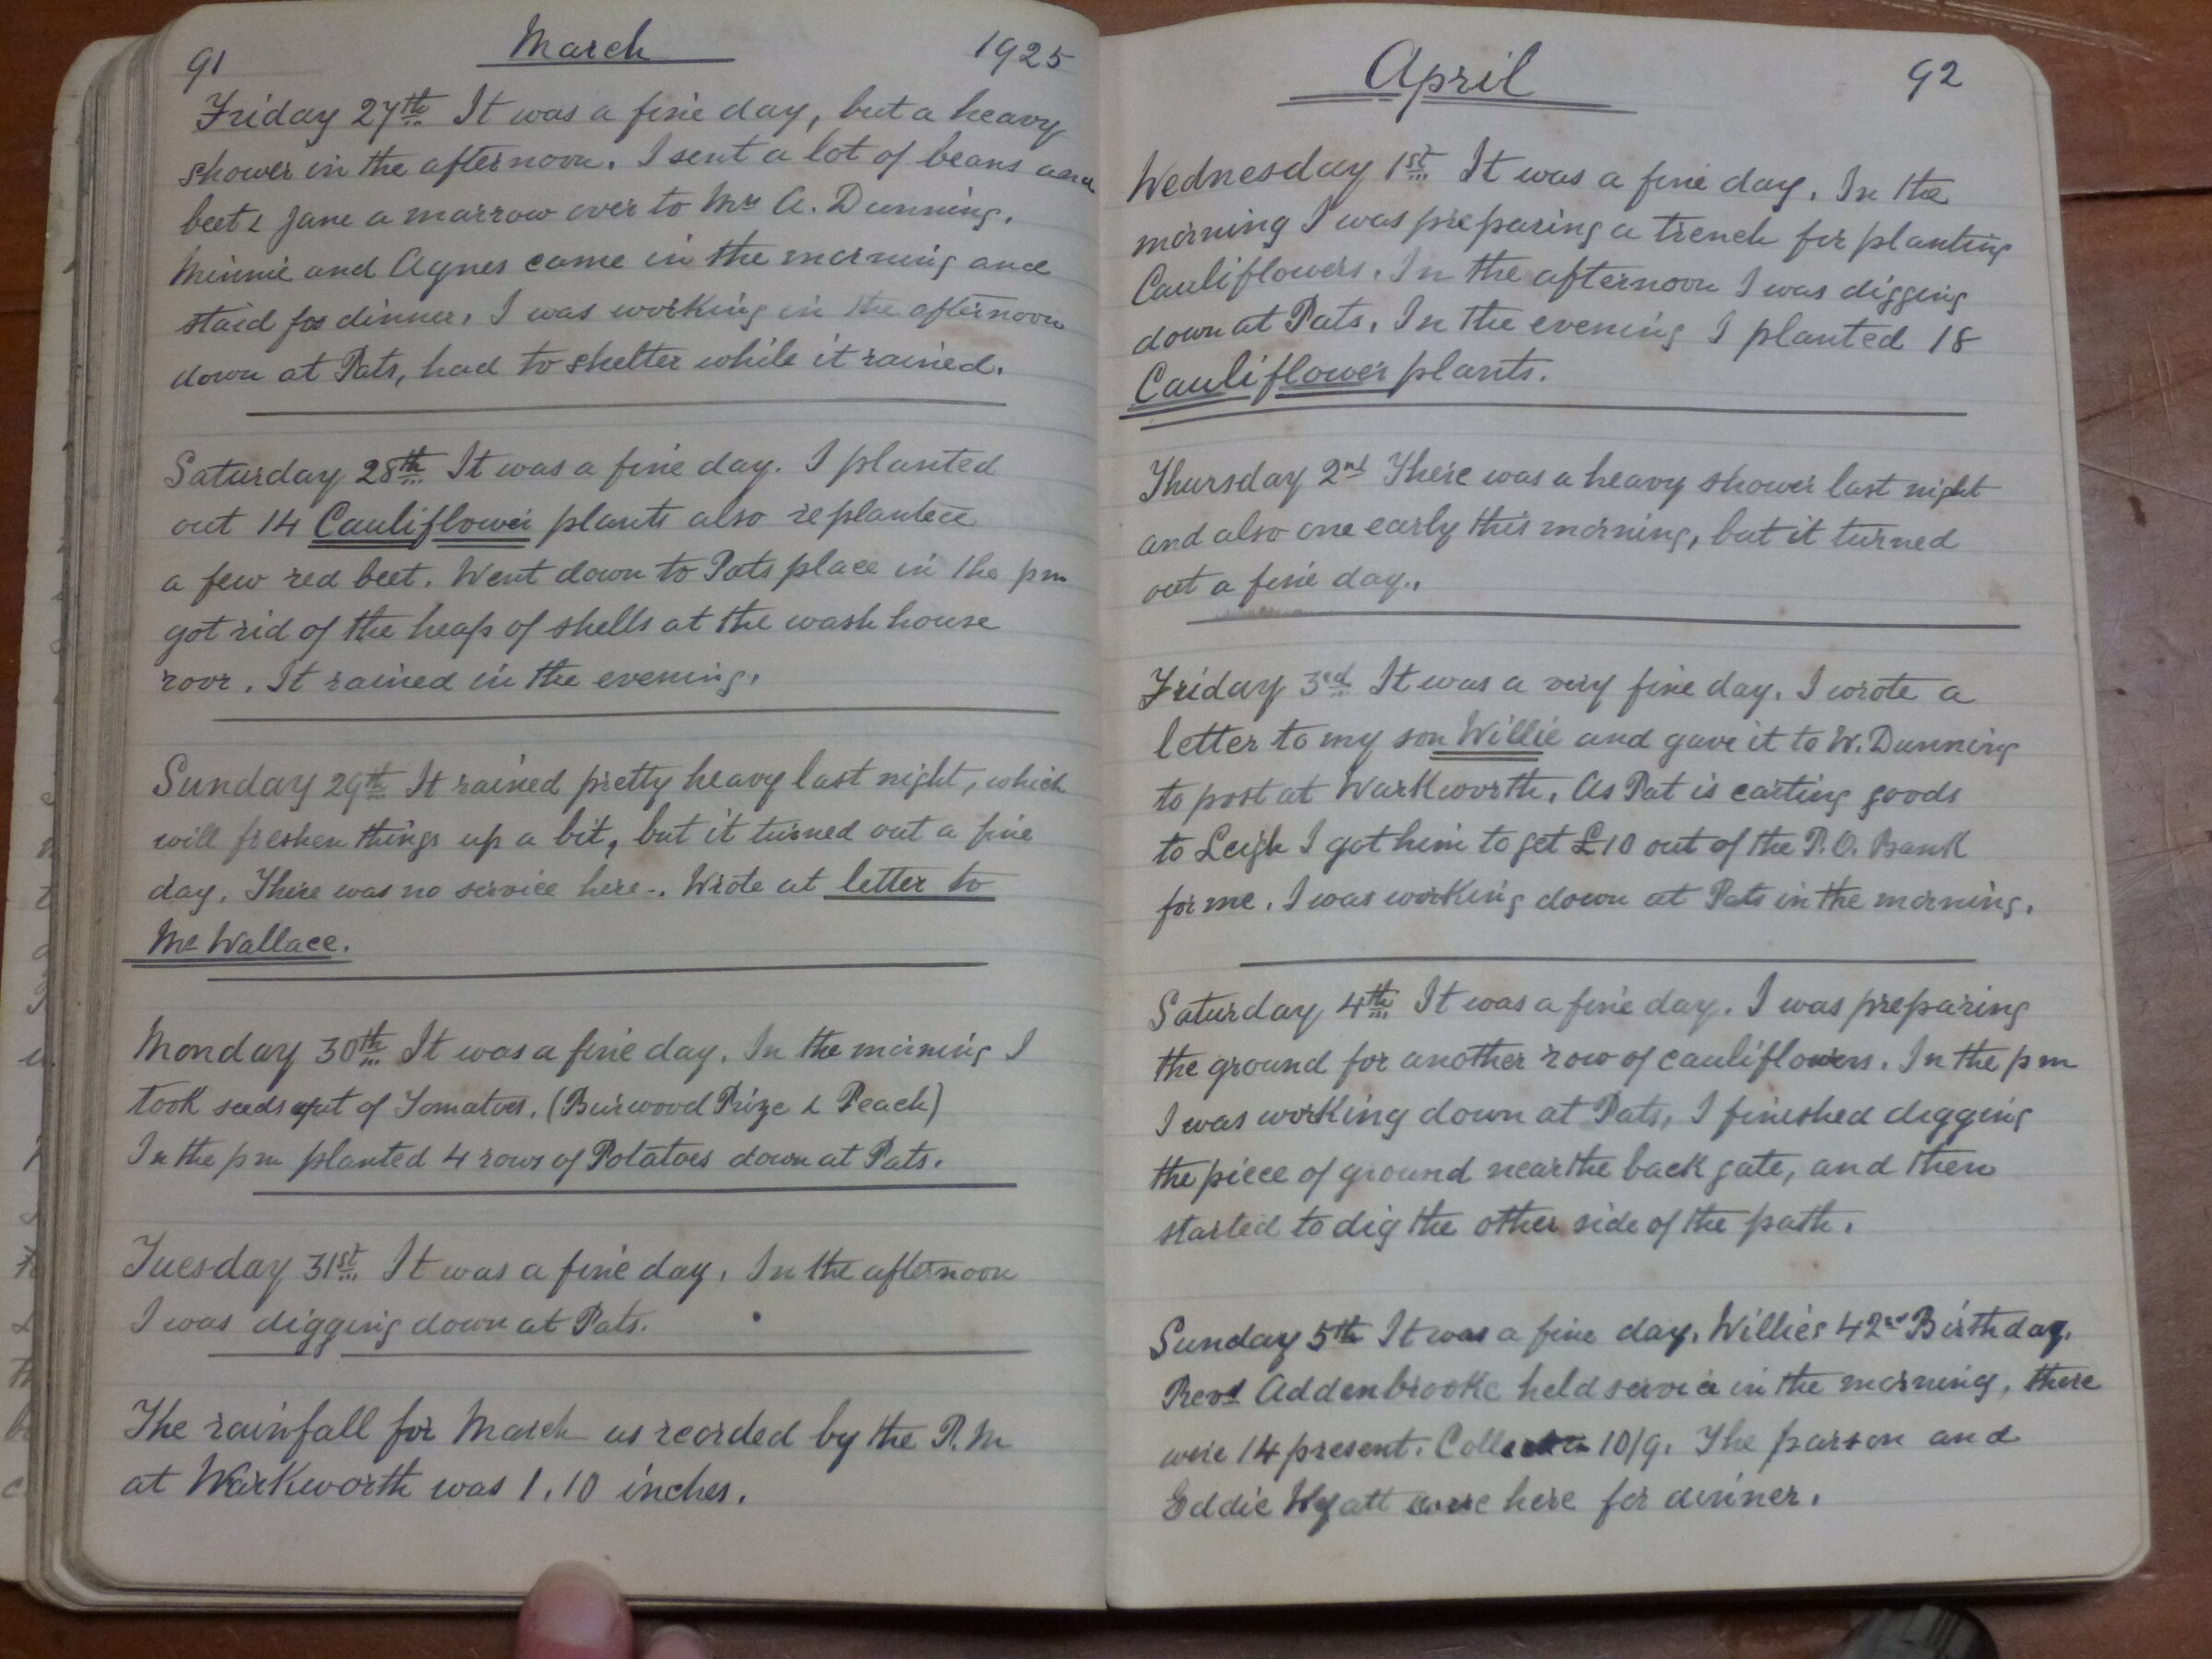 91 March 1925
Friday 27th It was a fine day, but a heavy
shower in the afternoon. I sent a lot of beans and
beet & Jane a marrow over to Mrs A. Dunning.
Minnie and Agnes came in the morning and
staid for dinner. I was working in the afternoon
down at Pats, had to shelter while it rained.
Saturday 28th It was a fine day. I planted
out 14 Cauliflower plants also replanted
a few red beet. Went down to Pats place in the pm
got rid of the heap of shells at the wash house
. It rained in the evening.
Sunday 29th It rained pretty heavy last night, which
will freshen things up a bit, but it turned out a fine
day. There was no service here. Wrote at letter to
Mr Wallace.
Monday 30th It was a fine day. In the morning I
took seeds out of Tomatoes. (Burwood Prize & Peach)
In the pm planted 4 rows of Potatoes down at Pats.
Tuesday 31st It was a fine day. In the afternoon
I was digging down at Pats.
The rainfall for March as recorded by the P.M
at Warkworth was 1.10 inches.
April 92
Wednesday 1st It was a fine day. In the
morning I was preparing a trench for planting
Cauliflowers. In the afternoon I was digging
down at Pats. In the evening I planted 18
Cauliflower plants.
Thursday 2nd There was a heavy shower last night
and also one early this morning, but it turned
out a fine day.
Friday 3rd It was a very fine day. I wrote a
letter to my son Willie and gave it to W. Dunning
to post at Warkworth. As Pat is carting goods
to Leigh I got him to get £10 out of the P.O. Bank
for me. I was working down at Pats in the morning.
Saturday 4th It was a fine day. I was preparing
the ground for another row of cauliflowers. In the pm
I was working down at Pats, I fineshed digging
the piece of ground near the back gate, and then
started to dig the other side of the path.
Sunday 5th It was a fine day. Willies 42nd Birthday.
Revd Addenbrooke held service in the morning, there
were 14 present. Collection 10/9. The parson and
Eddie Wyatt were here for dinner.